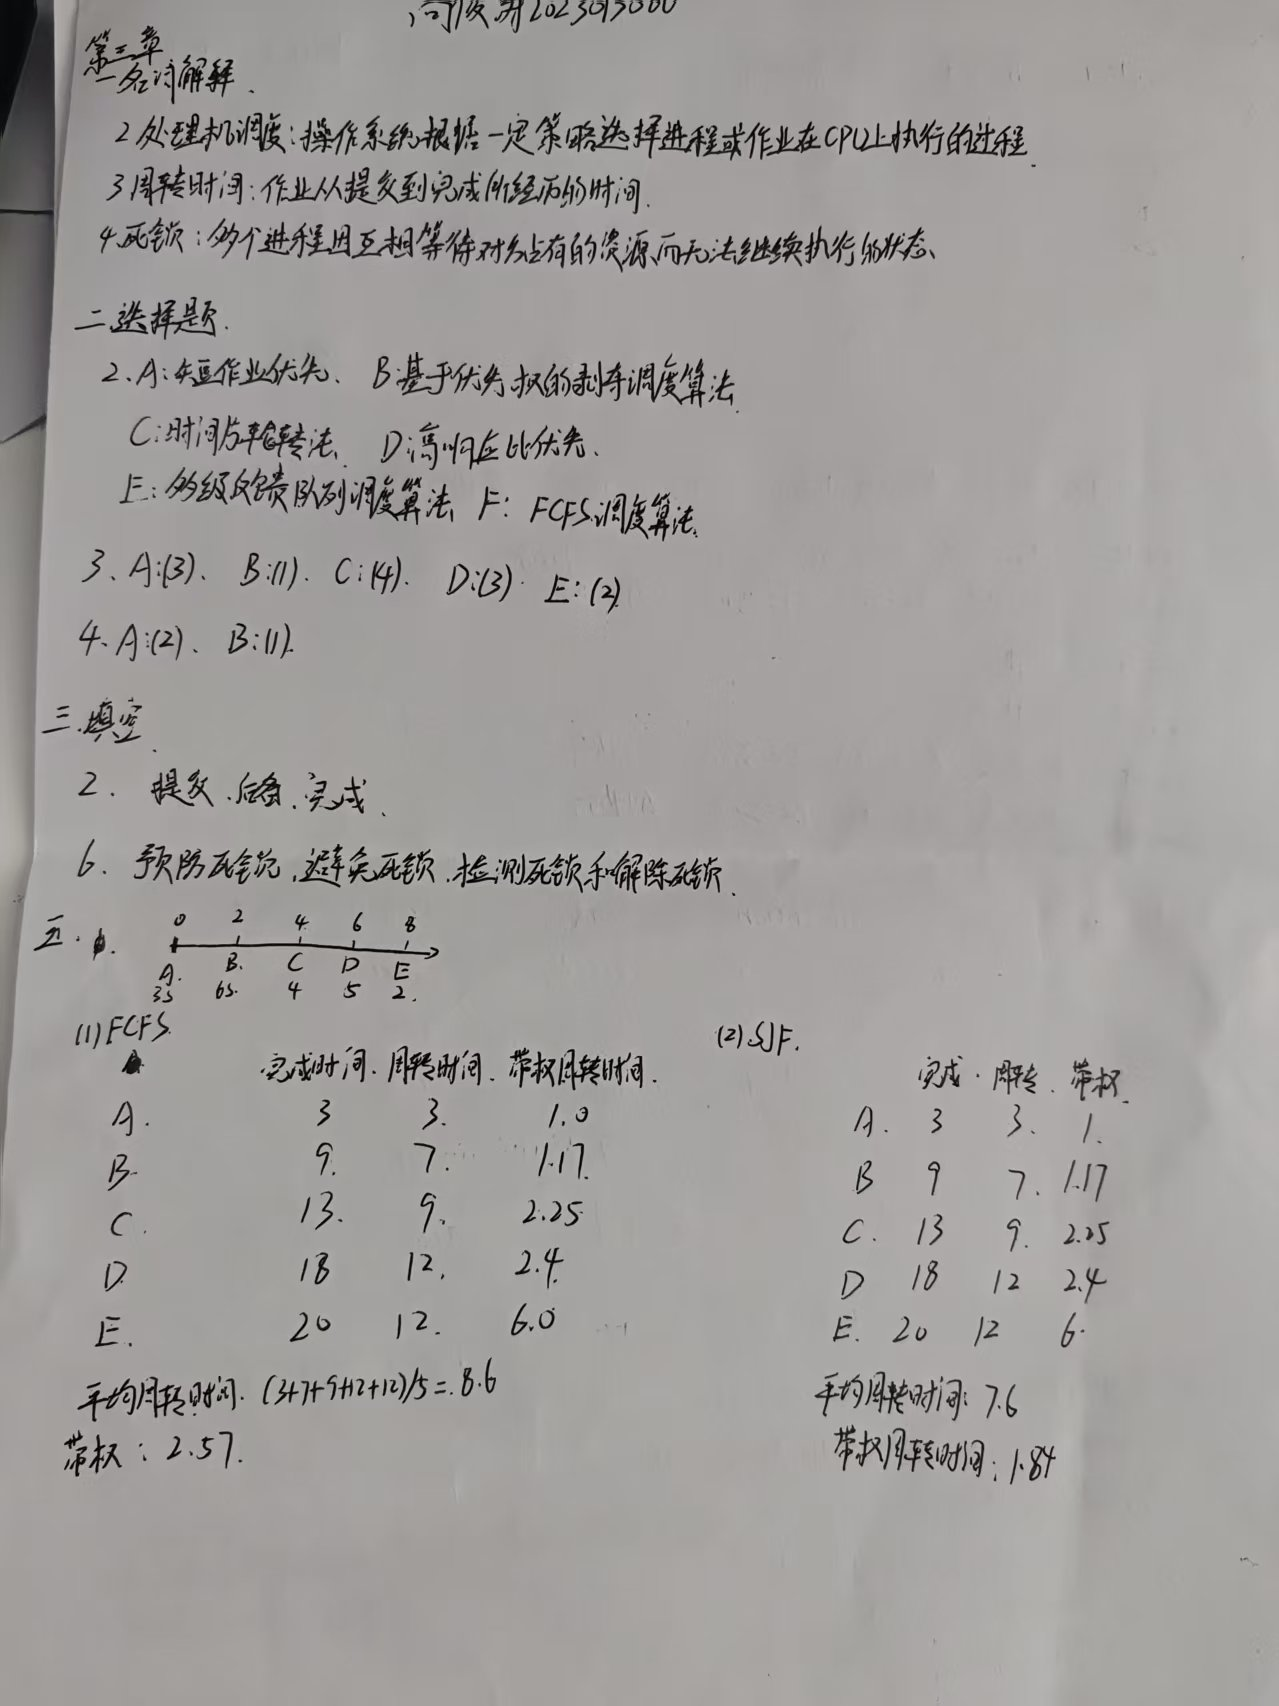 2023013060
第三章
一名词解释.
2处理机调度:操作系统根据一定策略选择进程或作业在CPU上执行的过程.
3周转时间:作业从提交到完成所经历的时间.
4.死锁:多个进程因互相等待对方占有的资源而无法继续执行的状态、
二.选择题.
2、A:短作业优先、 B:基于优先权的剥夺调度算法.
C:时间片轮转法、 D:高响应比优先.
E:多级反馈队列调度算法、 F: FCFS调度算法.
3、A:(3)、 B:(1). C:(4). D:(3). E:(2).
4、A:(2)、 B:(1).
三.填空.
2. 提交、后备、完成.
6. 预防死锁、避免死锁、检测死锁和解除死锁.
五.
0 2 4 6 8
A. B. C D E
3s 6s. 4 5 2.
(1)FCFS.
完成时间. 周转时间. 带权周转时间.
A. 3 3. 1.0
B. 9. 7. 1.17.
C. 13. 9. 2.25
D. 18 12. 2.4.
E. 20 12. 6.0
平均周转时间. (3+7+9+12+12)/5=.8.6
带权:2.57.
(2).SJF.
完成.周转.带权.
A. 3 3. 1.
B 9 7. 1.17
C. 13 9. 2.25
D 18 12 2.4
E. 20 12 6.
平均周转时间:7.6
带权周转时间:1.84